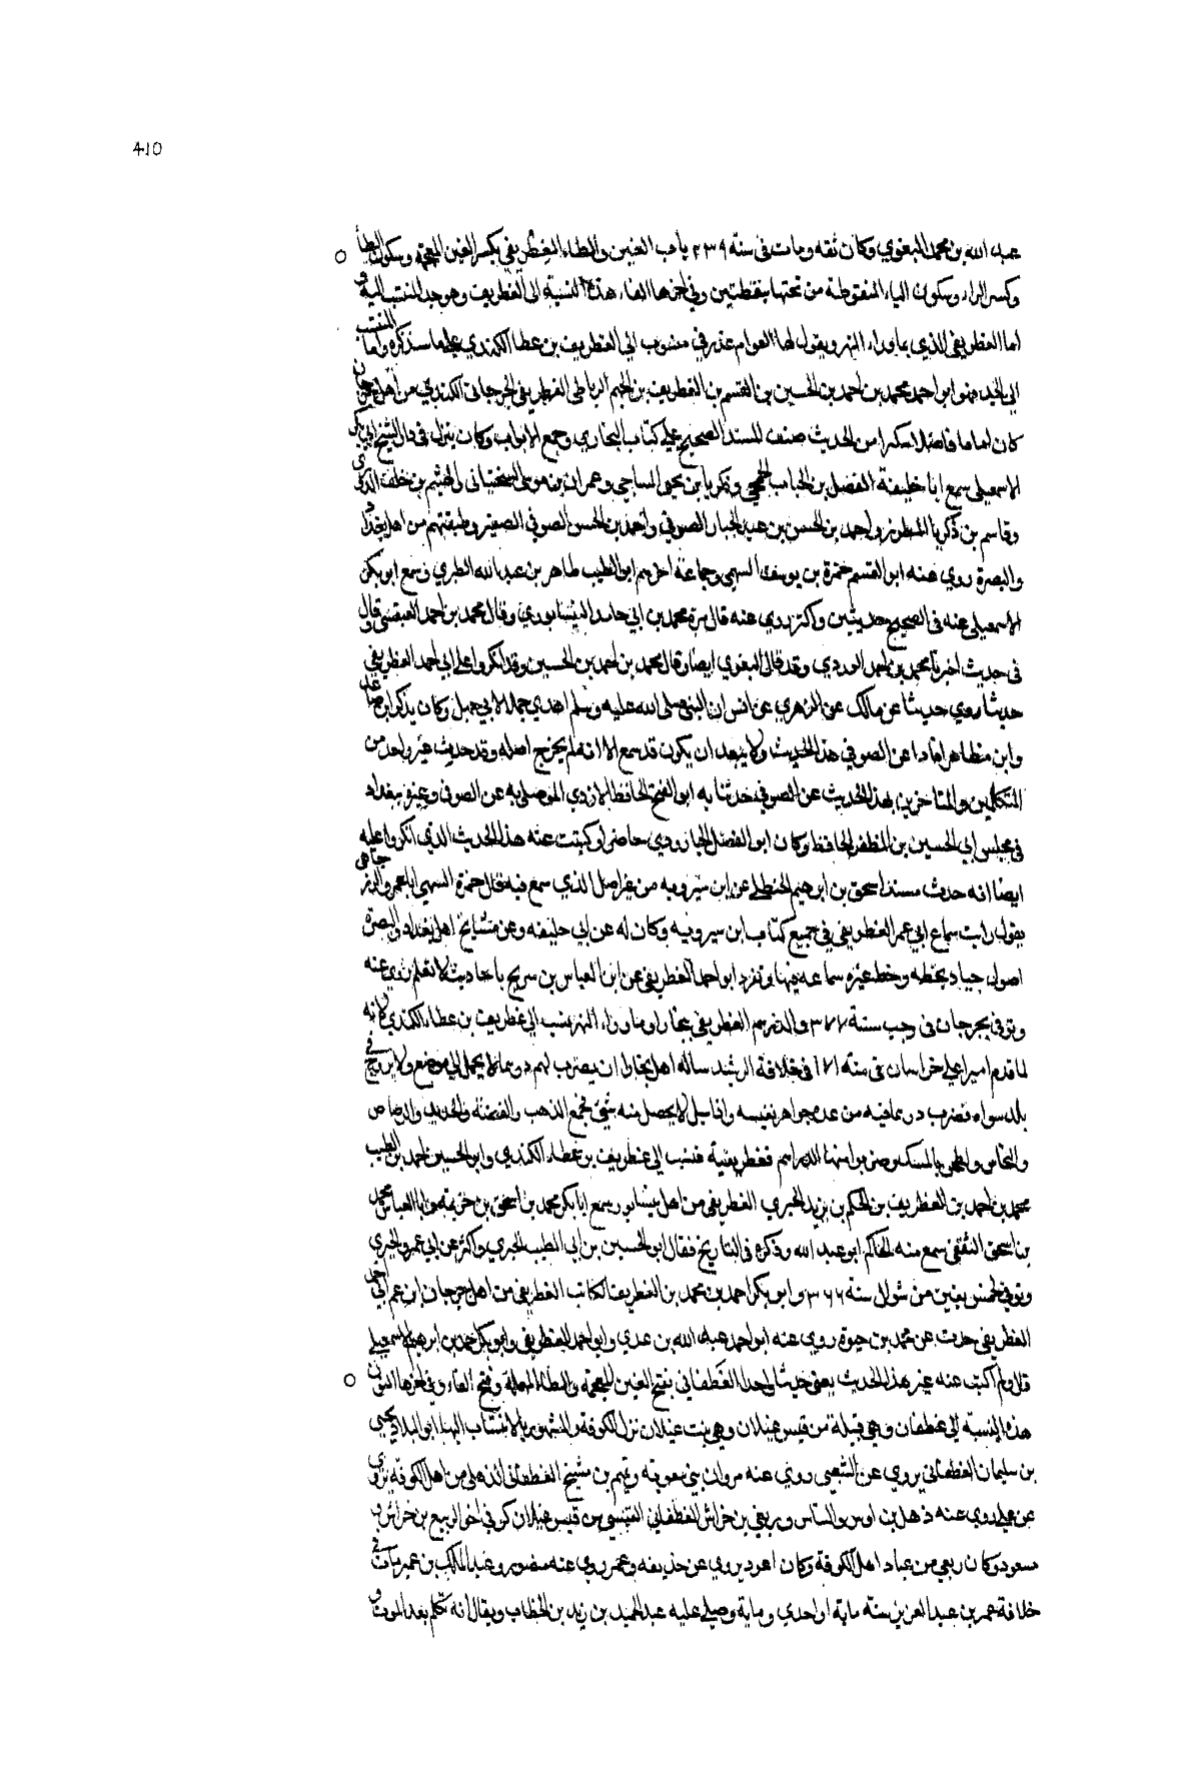 410
عبد الله بن محمد البغوي وكان ثقه ومات فى سنة ٢٣٩ باب الغين والطاء الغطريفي بكسر الغين المعجمة وسكون الطا
وكسر الراء وسكون الياء المنقوطة من تحتها بنقطتين وفي اخرها الفاء هذه النسبة الى الغطريف وهو جد المنتسب اليه
اما الغطريفى الذي بماوراء النهر ويقول لها العوام غدرفي منسوب الى الغطريف بن عطا الكندي على ما سنذكره واما المنتسب
الى الجد فهو ابو احمد محمد بن احمد بن الحسين بن القسم بن الغطريف بن الجهم الرباطى الغطريفى الجرجانى الكندي من اهل جرجان
كان اماما فاضلا مكثرا من الحديث صنف المسند الصحيح على كتاب البخاري وجمع الابواب وكان ينزل فى دار الشيخ ابى بكر
الاسمعيلى سمع ابا خليفة الفضل بن الحباب الجمحى وزكريا بن يحيى الساجي وعمران بن موسى السختيانى والهيثم بن خلف الدورى
وقاسم بن زكريا المطرز واحمد بن الحسن بن عبد الجبار الصوفي واحمد بن الحسن الصوفى الصغير وطبقتهم من اهل بغداد
والبصرة روي عنه ابو القسم حمزة بن يوسف السهمي وجماعة اخرهم ابو الطيب طاهر بن عبد الله الطبري وسمع ابو بكر
الاسمعيلى عنه فى الصحيح حديثين واكثر روي عنه قال مرة محمد بن ابي حامد النيسابوري وقال محمد بن احمد العبقسى وقال
فى حديث اخبرنا محمد بن احمد الوردي وقد قال البغوي ايضا وقال محمد بن احمد بن الحسين وقد انكروا على ابى احمد الغطريفي
حديثا روي حديثا عن مالك عن الزهري عن انس ان النبى صلى الله عليه وسلم اهدي جملا لابي جهل وكان يذكر ابن صاعد
وابن مظاهر افادا عن الصوفي هذا الحديث ولا يبعد ان يكون قد سمع الا انه لم يخرج اصله وقد حدث غير واحد من
المتكلمين والمتاخرين بهذا الحديث عن الصوفى حدثنا به ابو الفتح الحافظ الازدي الموصلى به عن الصوفى وغيره ببغداد
فى مجلس ابي الحسين بن المظفر الحافظ وكان ابو الفضل الجارودي حاضرا وكتبت عنه هذا الحديث الذي انكروا عليه
ايضا انه حدث مسند اسحق بن ابرهيم الحنظلى عن ابن شيرويه من غير اصل الذي سمع فيه قال حمزة السهمى ابا عمرو الرزجاهى
يقول رايت سماع ابي عمر الغطريفى في جميع كتاب ابن سيرويه وكان له عن ابي خليفه وعن مشايخ اهل بغداد والبصرة
اصول جياد بخطه وخط غيره سماعه فيها وتفرد ابو احمد الغطريفى عن ابن العباس بن سريج باحاديث لا نعلم روي عنه
وتوفي بجرجان فى رجب سنة ٣٧٧ والدرهم الغطريفى ببخارا وماوراء النهر ينسب الي غطريف بن عطاء الكندي لانه
لما قدم اميرا على خراسان فى سنة ١٧١ فى خلافة الرشيد سأله اهل بخارا ان يضرب لهم دوهما لا يحمل الي موضع ولا يروج فى
بلد سواه فضرب درهما فيه من عدة جواهر نفيسه واناسبل لا يحصل منه شئ فجمع الذهب والفضة والحديد والرصاص
والنحاس والطين بالمسك وضربوا منها الدراهم فغطريفية فنسب الي غطريف بن عطاء الكندي وابو الحسين احمد بن الطيب
محمد بن احمد بن الغطريف بن الحكم بن يزيد الحيري الغطريفى من اهل نيسابور سمع ابا بكر محمد بن اسحق بن خزيمة وابا العباس محمد
بن اسحق الثقفى سمع منه الحاكم ابو عبد الله وذكره فى التاريخ فقال ابو الحسين بن ابى الطيب الحيري واكثر عن ابي عمرو الحيرى
وتوفي لخمس بقين من شوال سنة ٣٦٦ وابو بكر احمد بن محمد بن الغطريف الكاتب الغطريفى من اهل جرجان ابن عم ابى احمد
الغطريفى حدث عن محمد بن حيوة روي عنه ابو احمد عبد الله بن عدي وابو احمد الغطريفى وابو بكر احمد بن ابرهيم الاسمعيلى
قال ولم اكتب عنه غير هذا الحديث يعنى حديثا واحدا الغطفانى بفتح الغين المعجمة والطاء المهملة وفتح الفاء وفي اخرها النون
هذه النسبة الى غطفان وهي قبيلة من قيس عيلان وهي بنت عيلان نزل الكوفة والمشهور بالانتساب اليها ابو البلاد يحيى
بن سليمان الغطفانى يروي عن الشعبى روي عنه مروان بن معوية وتميم بن مشيخ الغطفانى الذهلى من اهل الكوفة يروي
عن على روي عنه ذهل بن اوس والناس وربعى بن خراش الغطفانى القيسى من قيس عيلان كوفى اخو الربيع بن خراش و
مسعود وكان ربعى من عباد اهل الكوفة وكان اعور يروي عن حذيفه وعمر روي عنه منصور وعبد الملك بن عمير مات فى
خلافة عمر بن عبد العزيز سنة ماية او احدي وماية وصلى عليه عبد الحميد بن زيد بن الخطاب ويقال انه تكلم بعد الموت و